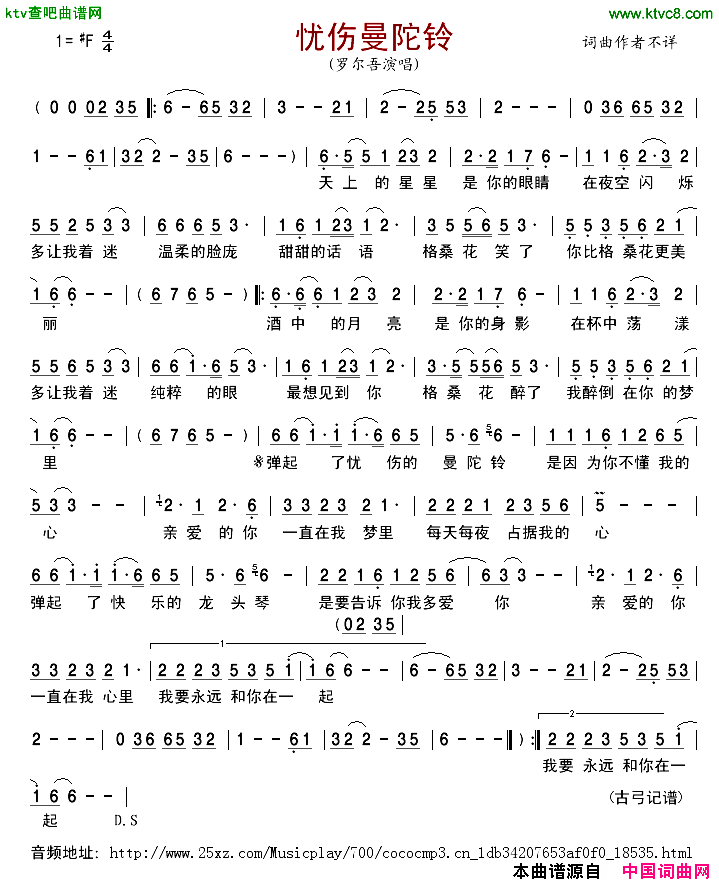 ktv查吧曲谱网
www.ktvc8.com
1=#F 4/4 忧伤曼陀铃 词曲作者不详
(罗尔吾演唱)
( 0 0 02 35 ‖: 6 - 65 32 | 3 - - 21 | 2 - 25 53 | 2 - - - | 0 36 65 32 |
1 - - 61 | 32 2 - 35 | 6 - - - ) | 6·5 5 1 23 2 | 2·2 1 7 6 - | 1 1 6 2·3 2 |
天 上 的 星 星 是 你的眼睛 在夜空 闪 烁
5 5 2 5 3 3 | 6 6 6 5 3· | 1 6 1 23 1 2· | 3·5 56 5 3· | 5 5 3 5 6 2 1 2 |
多让我着 迷 温柔的脸庞 甜甜的话 语 格桑 花 笑 了 你比格 桑花更美
1 6 6 - - | ( 6 7 6 5 - ) ‖: 6·6 6 1 2 3 2 | 2·2 1 7 6 - | 1 1 6 2·3 2 |
丽 酒 中 的月 亮 是 你的身 影 在杯中 荡 漾
5 5 6 5 3 3 | 6 6 1·6 5 3· | 1 6 1 23 1 2· | 3·5 556 5 3· | 5 5 3 5 6 6 2 1 |
多让我着 迷 纯粹 的 眼 最想见到 你 格 桑 花 醉了 我醉倒 在你 的梦
1 6 6 - - | ( 6 7 6 5 - ) | 6 6 1·1 1·6 6 | 5·6 6 - | 1 1 1 6 1 2 6 5 |
里 ※弹起 了忧 伤的 曼 陀 铃 是因 为你不懂 我的
5 3 3 - - | 2·1 2·6 | 3 3 2 3 2 1· | 2 2 2 1 2 3 5 6 | 5 - - - |
心 亲 爱 的 你 一直在我 梦里 每天每夜 占据我的 心
6 6 1·1 1·6 6 5 | 5·6 6 - | 2 1 6 1 2 5 6 | 6 3 3 - - | 2·1 2·6 |
弹起 了 快 乐的 龙 头 琴 是要告诉 你我多爱 你 亲 爱 的 你
(0 2 35 |
1
3 3 2 3 2 1· | 2 2 2 3 5 3 5 1 | 1 6 6 - - | 6 - 65 32 | 3 - - 21 | 2 - 25 53 |
一直在我 心里 我要永远 和你在一 起
2
2 - - - | 0 36 65 32 | 1 - - 61 | 32 2 - 35 | 6 - - - ‖ ) :‖ 2 2 2 3 5 3 5 1 |
我要 永远 和你在一
1 6 6 - - |
起 D.S (古弓记谱)
音频地址: http://www.25xz.com/Musicplay/700/cococmp3.cn_1db34207653af0f0_18535.html
本曲谱源自 中国词曲网